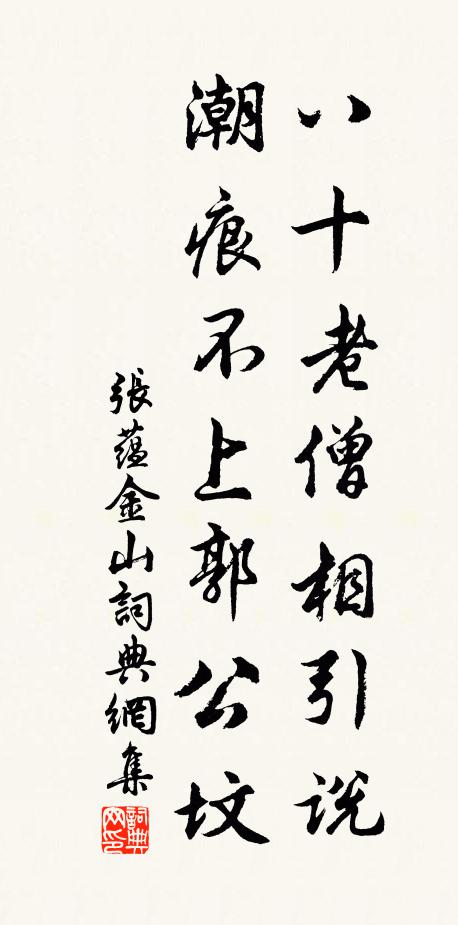 八十老僧相引説
潮痕不上郭公墳
張蘊金山詞典網集
詞典网印